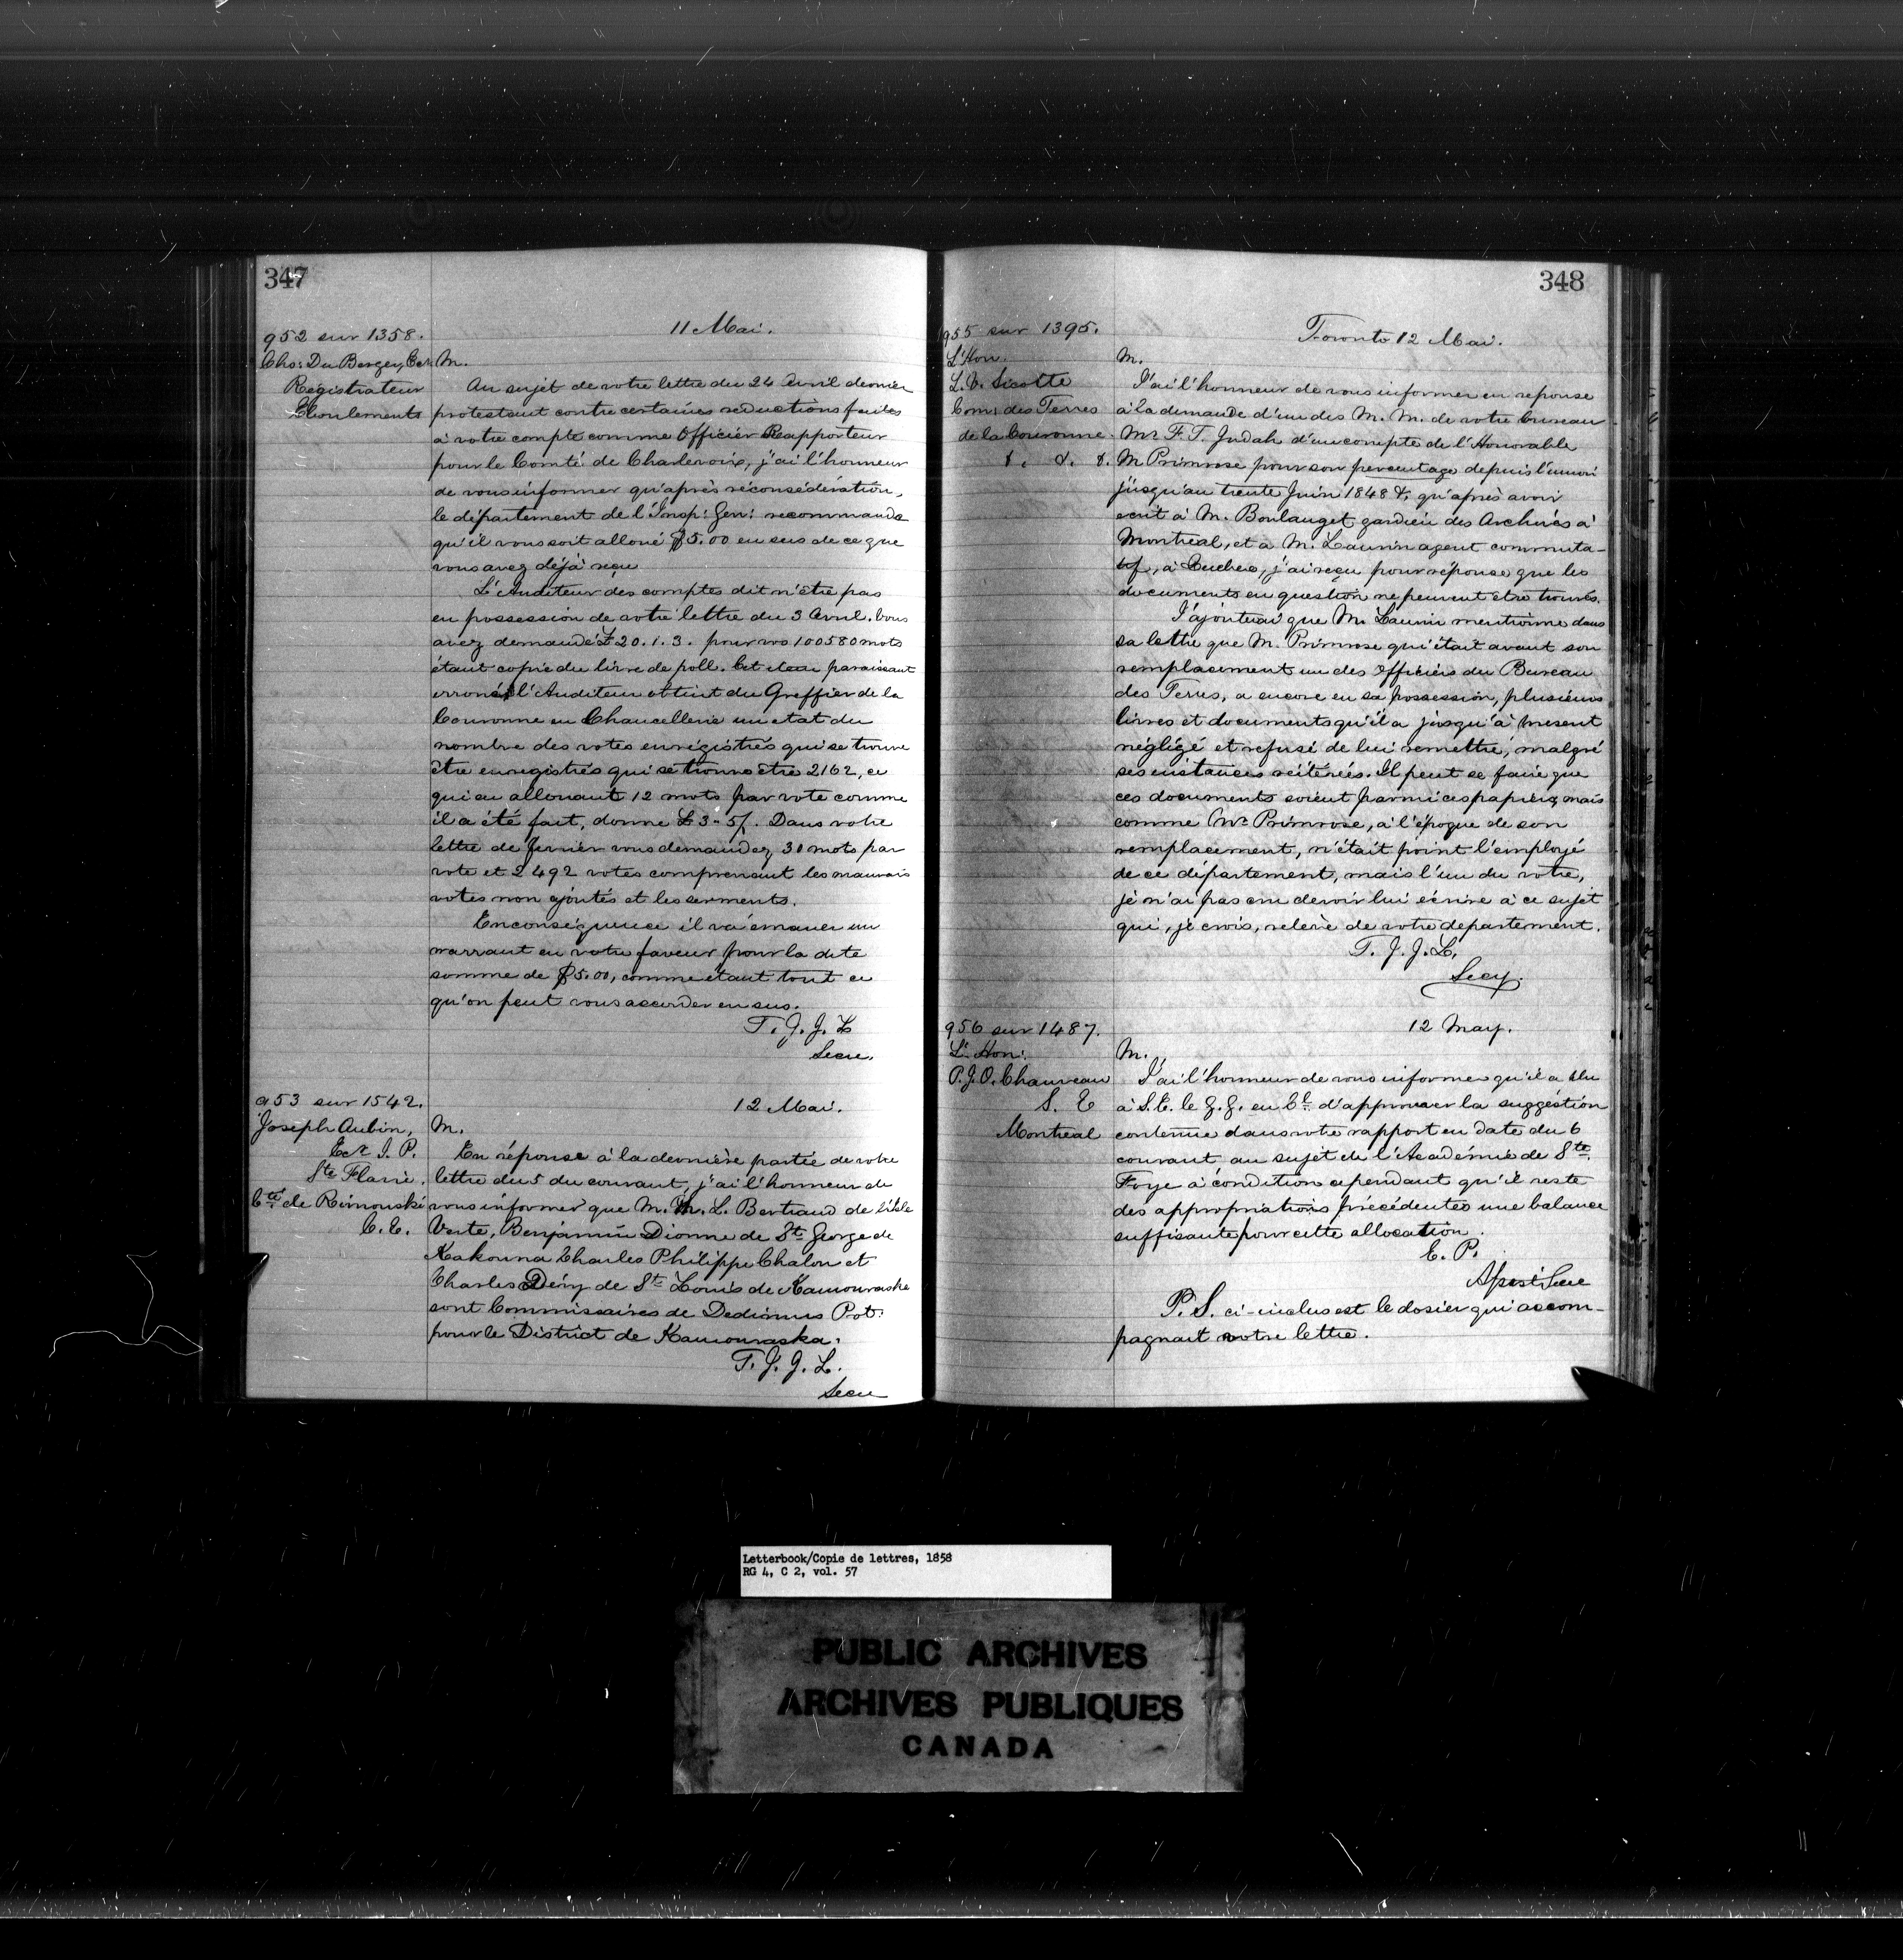 347
952 sur 1358.
11 Mai.
Chs: Du Berger, Ecr
Registrateur
Eboulements
M.
Au sujet de votre lettre du 24 Avril dernier
protestant contre certaines reductions faites
à votre compte comme Officier Reapporteur
pour le Comté de Charlevoix, j'ai l'honneur
de vous informer qu'après réconsidération,
le département de l'Insp: Gen: recommande
qu'il vous soit alloué $5.00 en sus de ce que
vous avez déjà reçu
L'Auditeur des comptes dit n'être pas
en possession de votre lettre du 3 Avril. Vous
avez demandé £20.1.3. pour vos 100580 mots
étant copie du livre de poll. Cet item paraissant
erroné, l'Auditeur obtint du Greffier de la
Couronne en Chancellerie un etat du
nombre des votes enrégistrés qui se trouve
être enregistrés qui se trouve être 2162, ce
qui en allouant 12 mots par vote comme
il a été fait, donne £3-5/. Dans votre
lettre de fevrier vous demandez 30 mots par
vote et 2492 votes comprenant les mauvais
votes non ajoutés et les serments.
En conséquence il va émaner un
warrant en votre faveur pour la dite
somme de $5.00, comme étant tout ce
qu'on peut vous accorder en sus.
T. J. J. L
Secre.
953 sur 1542.
12 Mai.
Joseph Aubin,
Ecr J. P.
Ste Flavie,
Cté de Rimouski
C. E.
M.
En réponse à la dernière partie de votre
lettre du 5 du courant, j'ai l'honneur de
vous informer que M. Ch. L. Bertrand de l'Isle
Verte, Benjamin Dionne de St George de
Kakouna Charles Philippe Chalon et
Charles Déry de St Louis de Kamouraska
sont Commissaires de Dedimus Pot:
pour le District de Kamouraska.
T. J. J. L.
Secre
348
955 sur 1395.
Toronto 12 Mai.
L'Hon.
L. V. Sicotte
Com: des Terres
de la Couronne.
&. &. &.
M.
J'ai l'honneur de vous informer en reponse
à la demande d'un des M. M. de votre bureau
Mr F. T. Judah d'un compte de l'Honorable
M Primrose pour son percentage depuis l'union
jusqu'au trente Juin 1848 &, qu'après avoir
ecrit à M. Boulanget gardien des Archives à
Montreal, et à M. Laurin agent commuta-
tif, à Quebec, j'ai reçu pour réponse que les
documents en question ne peuvent etre trouvés.
J'ajouterai que M. Laurin mentionne dans
sa lettre que M. Primrose qui était avant son
remplacement un des Officiers du Bureau
des Terres, a encore en sa possession, plusieurs
livres et documents qu'il a jusqu'à present
négligé et refusé de lui remettre, malgré
ses instances réitérées. Il peut se faire que
ces documents soient parmi ces papiers, mais
comme Mr Primrose, à l'époque de son
remplacement, n'était point l'employé
de ce département, mais l'un du votre,
je n'ai pas cru devoir lui écrire à ce sujet
qui, je crois, relève de votre departement.
T. J. J. L.
Secy.
956 sur 1487.
12 May.
L'Hon:
P. J. O. Chauveau
S. E
Montreal
M.
J'ai l'honneur de vous informer qu'il a plu
à S. E. le G. G. en Cl d'approuver la suggéstion
contenue dans votre rapport en date du 6
courant au sujet de l'Academie de Ste
Foye à condition cependant qu'il reste
des appropriations précédentes une balance
suffisante pour cette allocation.
E. P.
Assist Secre
P. S. ci-inclus est le dosier qui accom-
pagnait votre lettre.
Letterbook/Copie de lettres, 1858
RG 4, C 2, vol. 57
PUBLIC ARCHIVES
ARCHIVES PUBLIQUES
CANADA